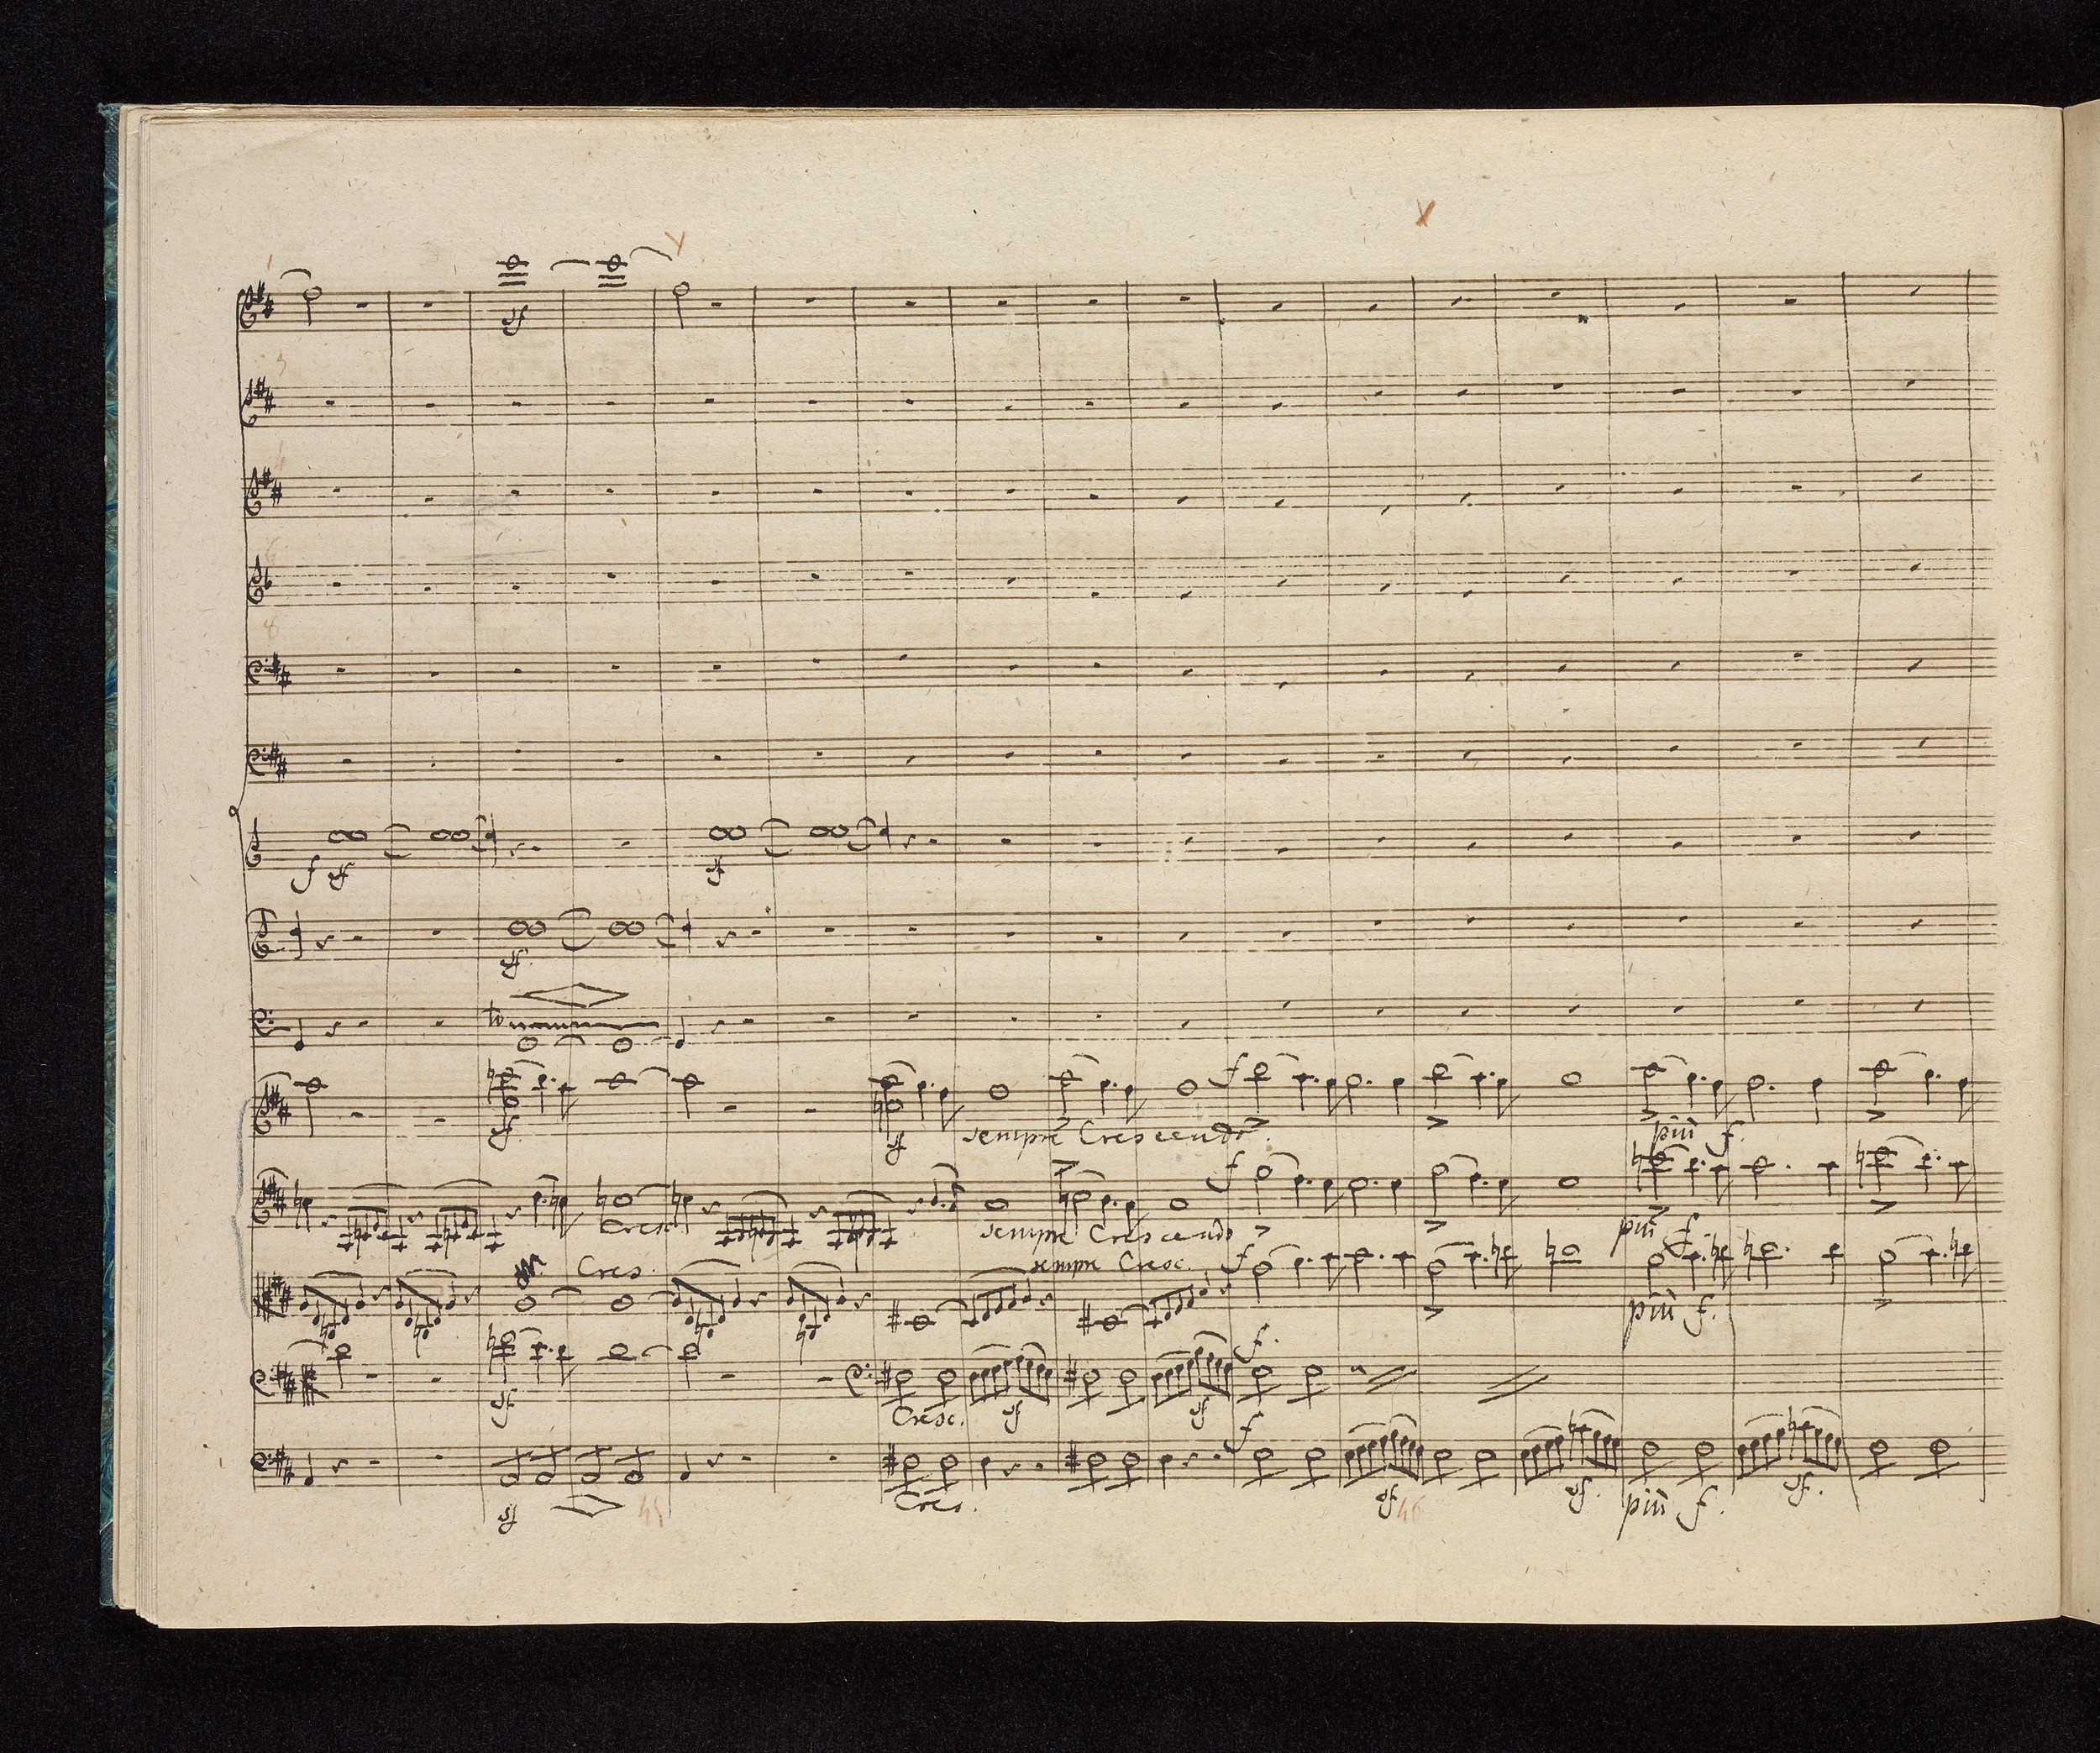 1
sf
3
4
6
8
f sf sf
sf
tr
sf sf sempre Crescendo. f più f.
Cres. sempre Crescendo f più f.
Cres. sempre Cresc. f più f.
sf Cresc. sf sf f.
sf Cres. f sf sf. più f. sf.
45 46